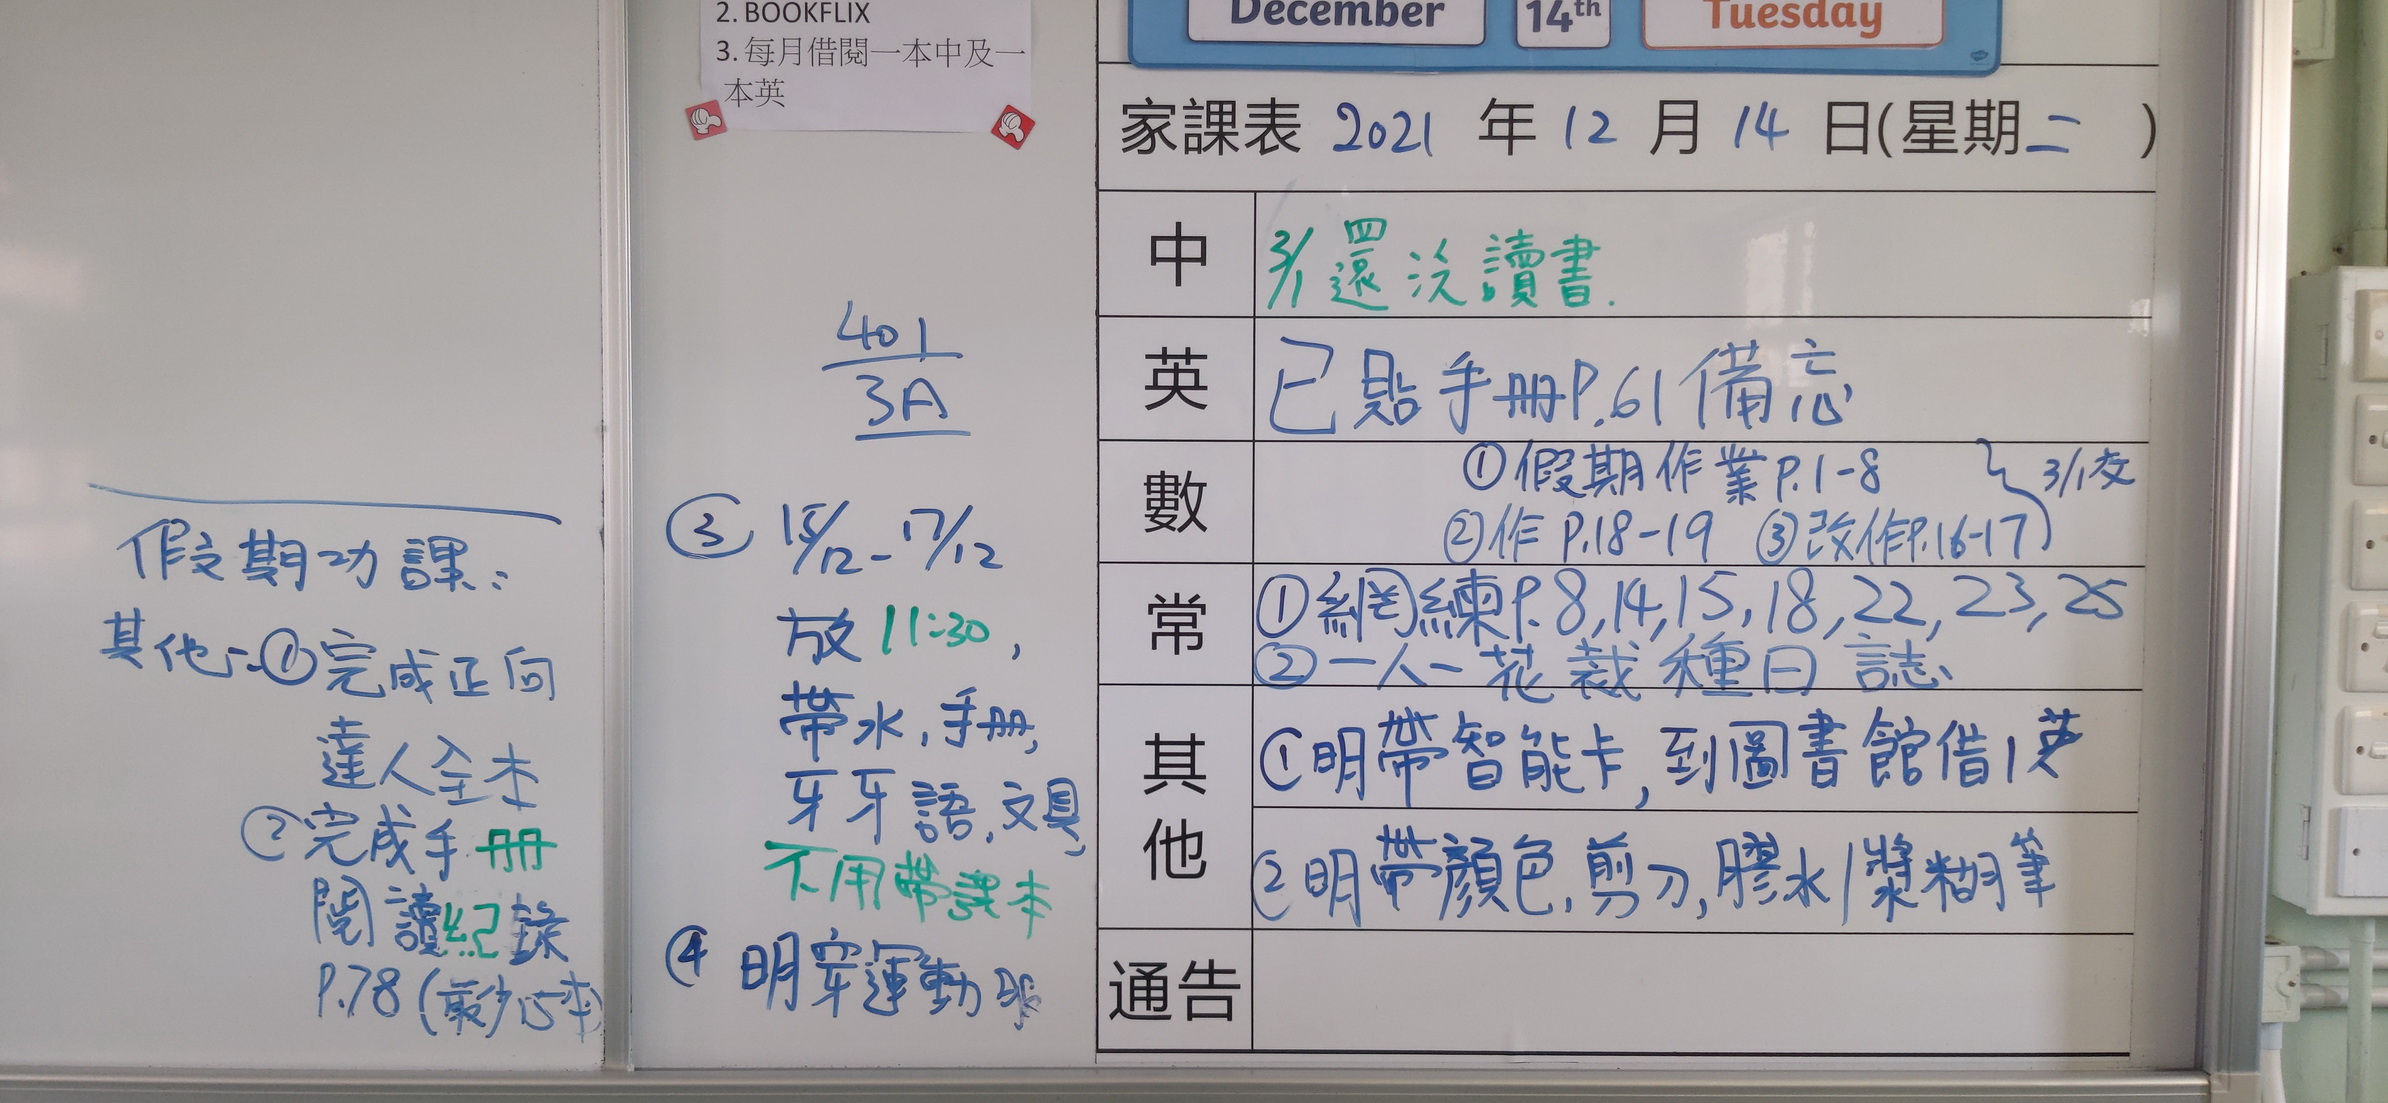 假期功課:
其他:①完成正向
達人全本
②完成手冊
閱讀紀錄
P.78(最少15本)
2. BOOKFLIX
3. 每月借閱一本中及一
本英
401
3A
③ 15/12-17/12
放11:30,
帶水,手冊,
牙牙語,文具,
不用帶課本
④ 明穿運動服
December 14th Tuesday
家課表 2021 年 12 月 14 日(星期二 )
中 3/1還 讀書.
英 已貼手冊P.61備忘
數 ①假期作業P.1-8 3/1交
②作P.18-19 ③改作P.16-17
常 ①網練P.8,14,15,18,22,23,25
②一人一花栽種日誌
其他 ①明帶智能卡,到圖書館借1英
②明帶顏色,剪刀,膠水/漿糊筆
通告